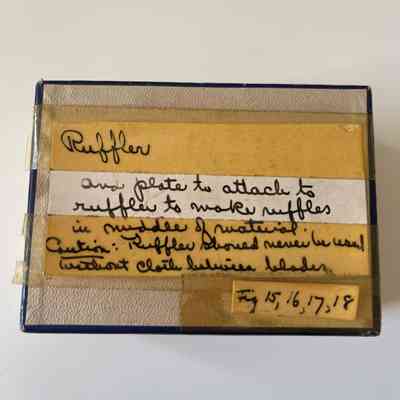 Ruffler
and plate to attach to
ruffler to make ruffles
in middle of material.
Caution: Ruffler should never be used
without cloth between blades.
Fig 15, 16, 17, 18